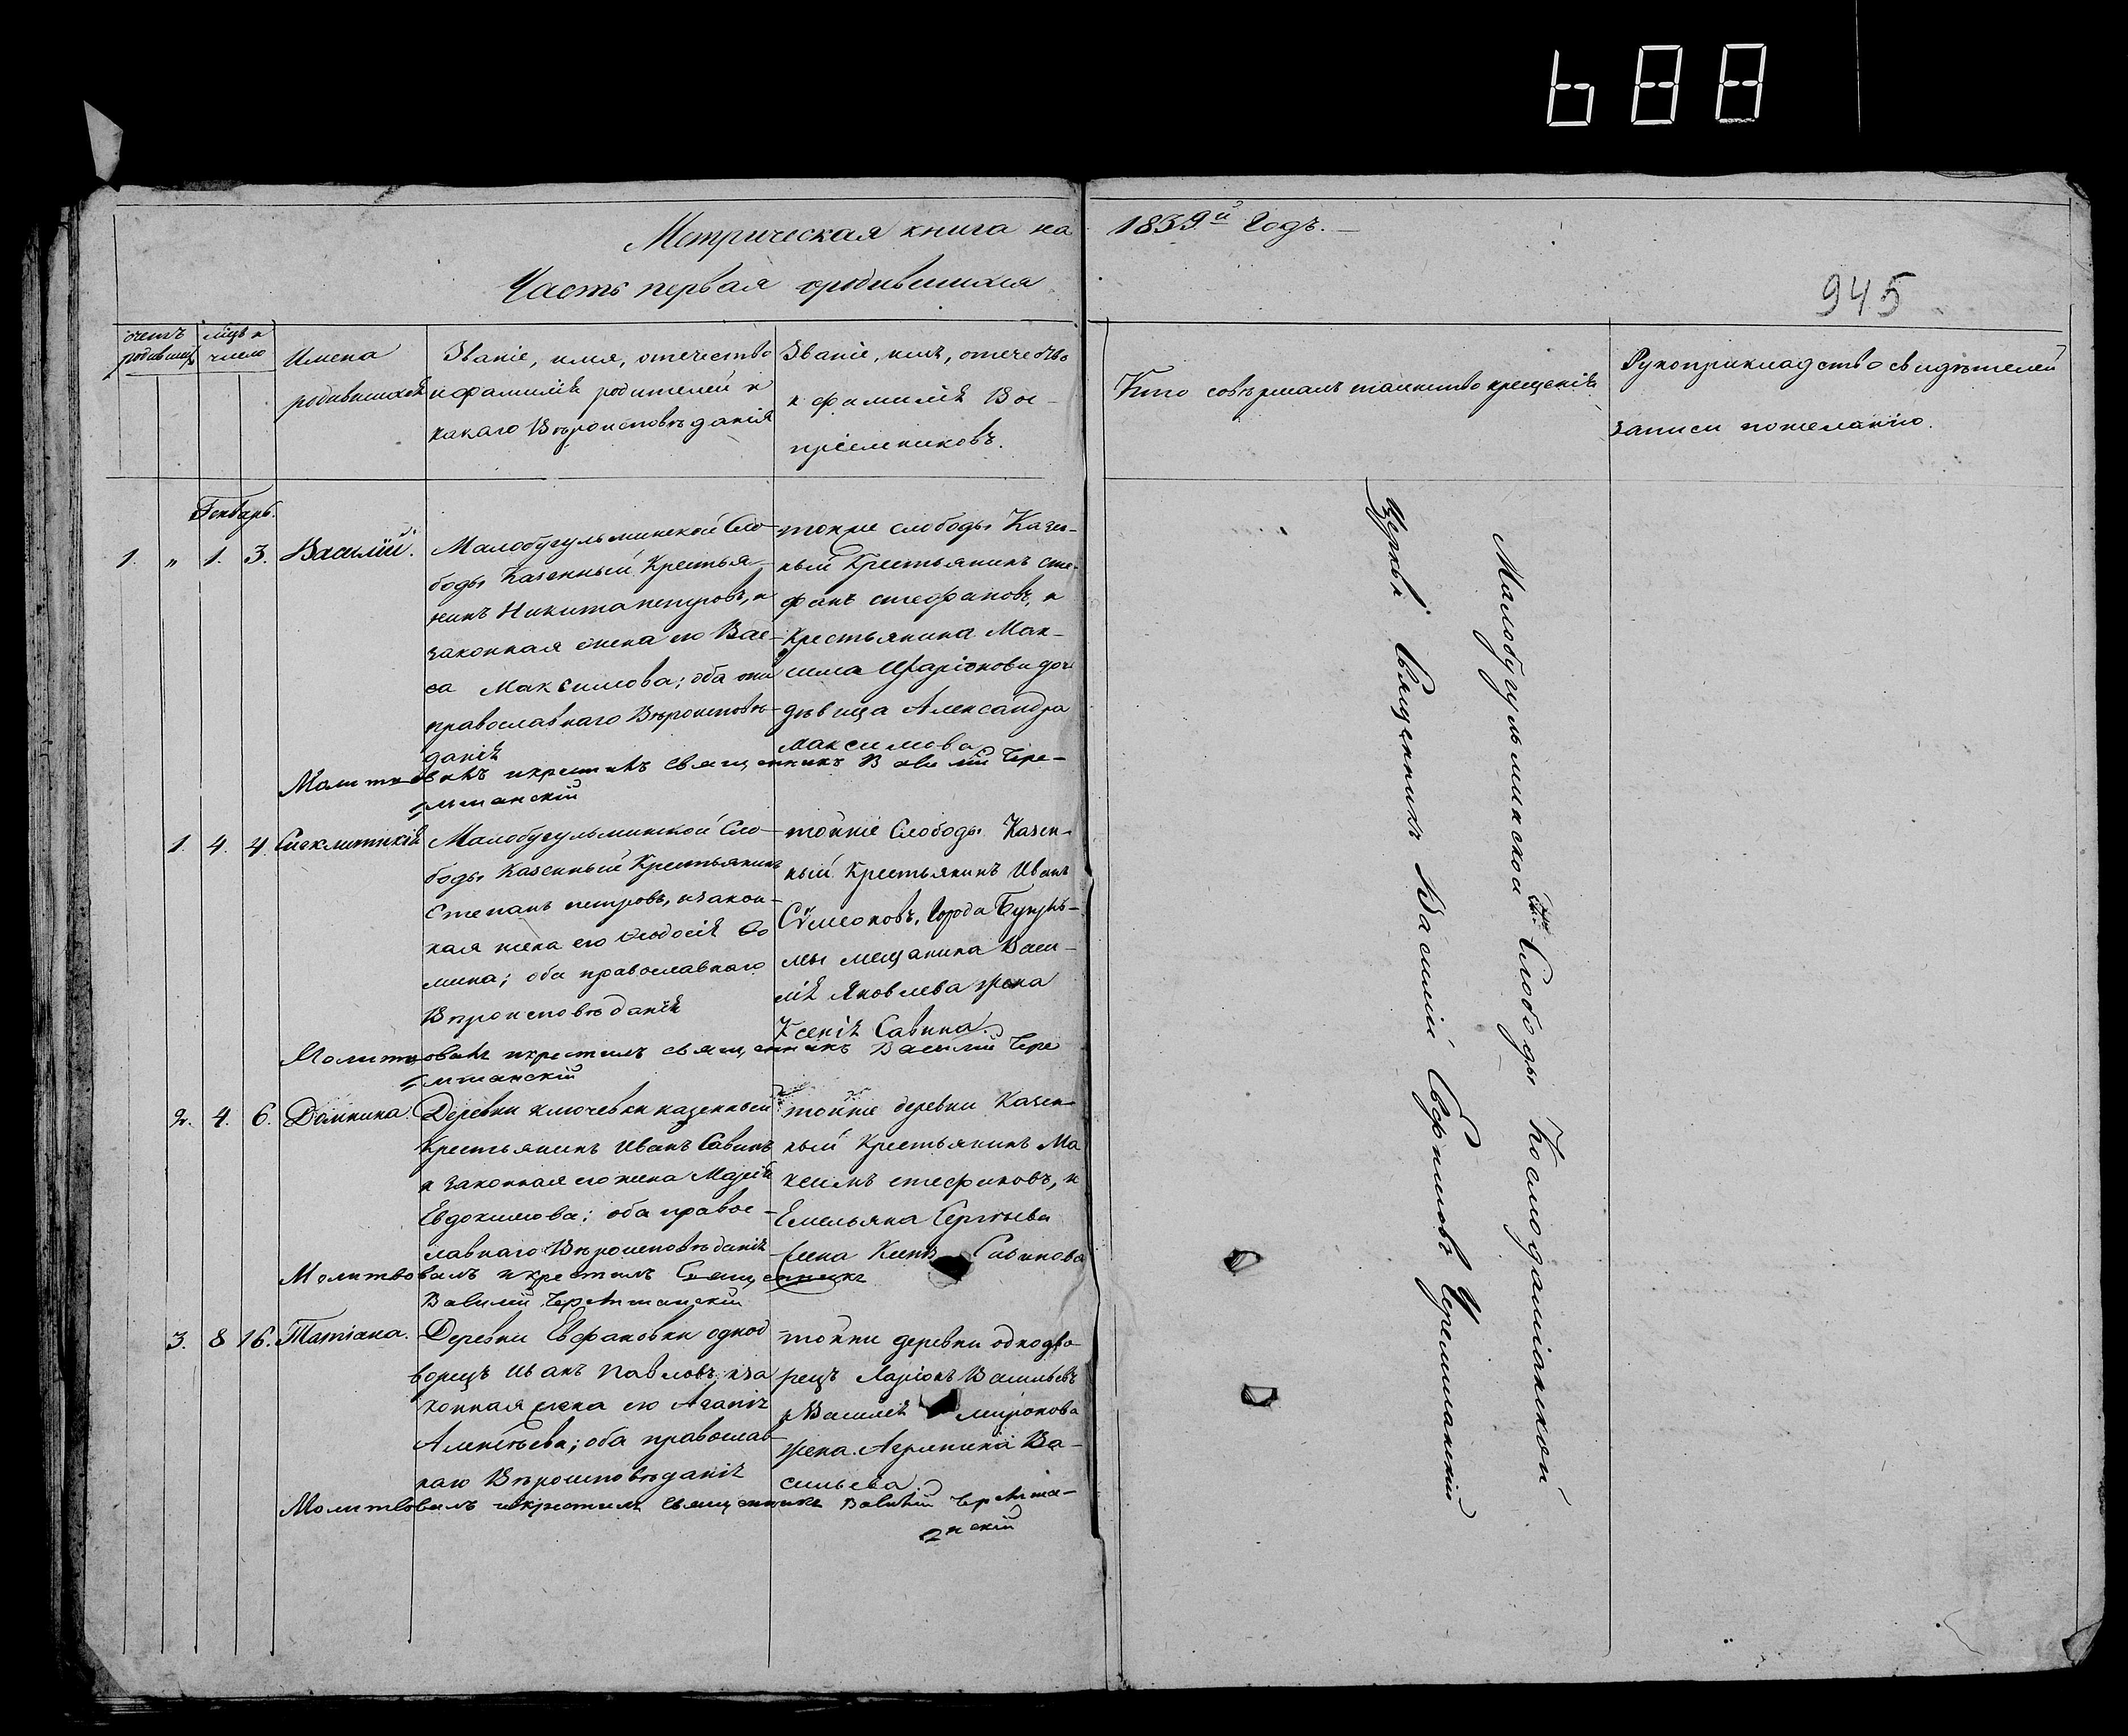 688
Метрическая книга на 1839й Годъ.
945
Часть первая о родившихся
счетъ родившихъ
мцъ и число
Имена
родившихся
Званіе, имя, отечество
и фамилія родителей и
какаго Вѣроисповѣданія
Званіе, имя, отечество
и фамилія Вос-
пріемниковъ.
Кто совѣршалъ таинство крещенія
Рукоприкладство свидѣтелей
записи по желанію.
Генварь.
1. " 1. 3. Василій.
Малобугульминской Сло-
боды Казенный Крестья-
нинъ Никита петровъ, и
законная жена его Вас-
са Максимова; оба они
православнаго Вѣроисповѣ-
данія
тойже слободы Казен-
ный Крестьянинъ сте-
фанъ стефановъ, и
крестьянина Мак-
сима Иларіонова дочь
дѣвица Александра
максимова
Молитвовалъ и крестилъ священникъ Василій Чере-
мшанскій
1. 4. 4. Сигклитикія
Малобугульминской Сло-
боды Казенный Крестьянинъ
Степанъ петровъ, и закон-
ная жена его Ѳеодосія Ѳо
мина; оба православнаго
Вѣроисповѣданія
тойже Слободы Казен-
ный Крестьянинъ Иванъ
Сѵмеоновъ, Города Бугуль-
мы мещанина Васи-
лія Яковлева жена
Ксенія Савина.
Молитвовалъ и крестилъ священникъ Василій Чере
мшанскій
2. 4. 6. Домникa.
Деревни ключевки казенный
Крестьянинъ Иванъ Савинъ
и законная его жена Марія
Евдокимова; оба правос-
лавнаго Вѣроисповѣданія
тойже деревни Казен
ный Крестьянинъ Ма
ксимъ стефановъ, и
Емельяна Сергѣева
жена Савинова
Молитвовалъ и крестилъ Священникъ
Василій Черемшанскій
3. 8 16. Татіана.
Деревни Евфановки однод
ворецъ Иванъ Павловъ, и за
конная жена его Агапія
Алексѣева; оба православ-
наго Вѣроисповѣданія
тойже деревни однодво-
рецъ Ларіонъ Васильевъ
и Василія миронова
жена Агрипина Ва-
сильева
Молитвовалъ и крестилъ священникъ Василій Черемша-
нскій
Малобугульминской Слободы Космодаміанской
Церкви Священникъ Василій Ефремовъ Черемшанскій